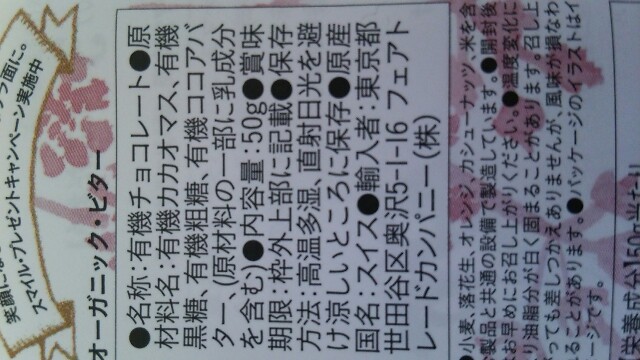 つ面に。
スマイル・プレゼントキャンペーン実施中
オーガニック・ビター
●名称:有機チョコレート●原
材料名:有機カカオマス、有機
黒糖、有機粗糖、有機ココアバ
ター、(原材料の一部に乳成分
を含む)●内容量:50g●賞味
期限:枠外上部に記載●保存
方法:高温多湿、直射日光を避
け涼しいところに保存●原産
国名:スイス●輸入者:東京都
世田谷区奥沢5-1-16 フェアト
レードカンパニー(株)
●小麦、落花生、オレンジ、カシューナッツ、米を含
む製品と共通の設備で製造しています。●開封後
はお早めにお召し上がりください。●温度変化に
より油脂分が白く固まることがあります。召し上
っても差しつかえありませんが、風味が損なわ
ることがあります。●パッケージのイラストはイ
ージです。
栄養成分